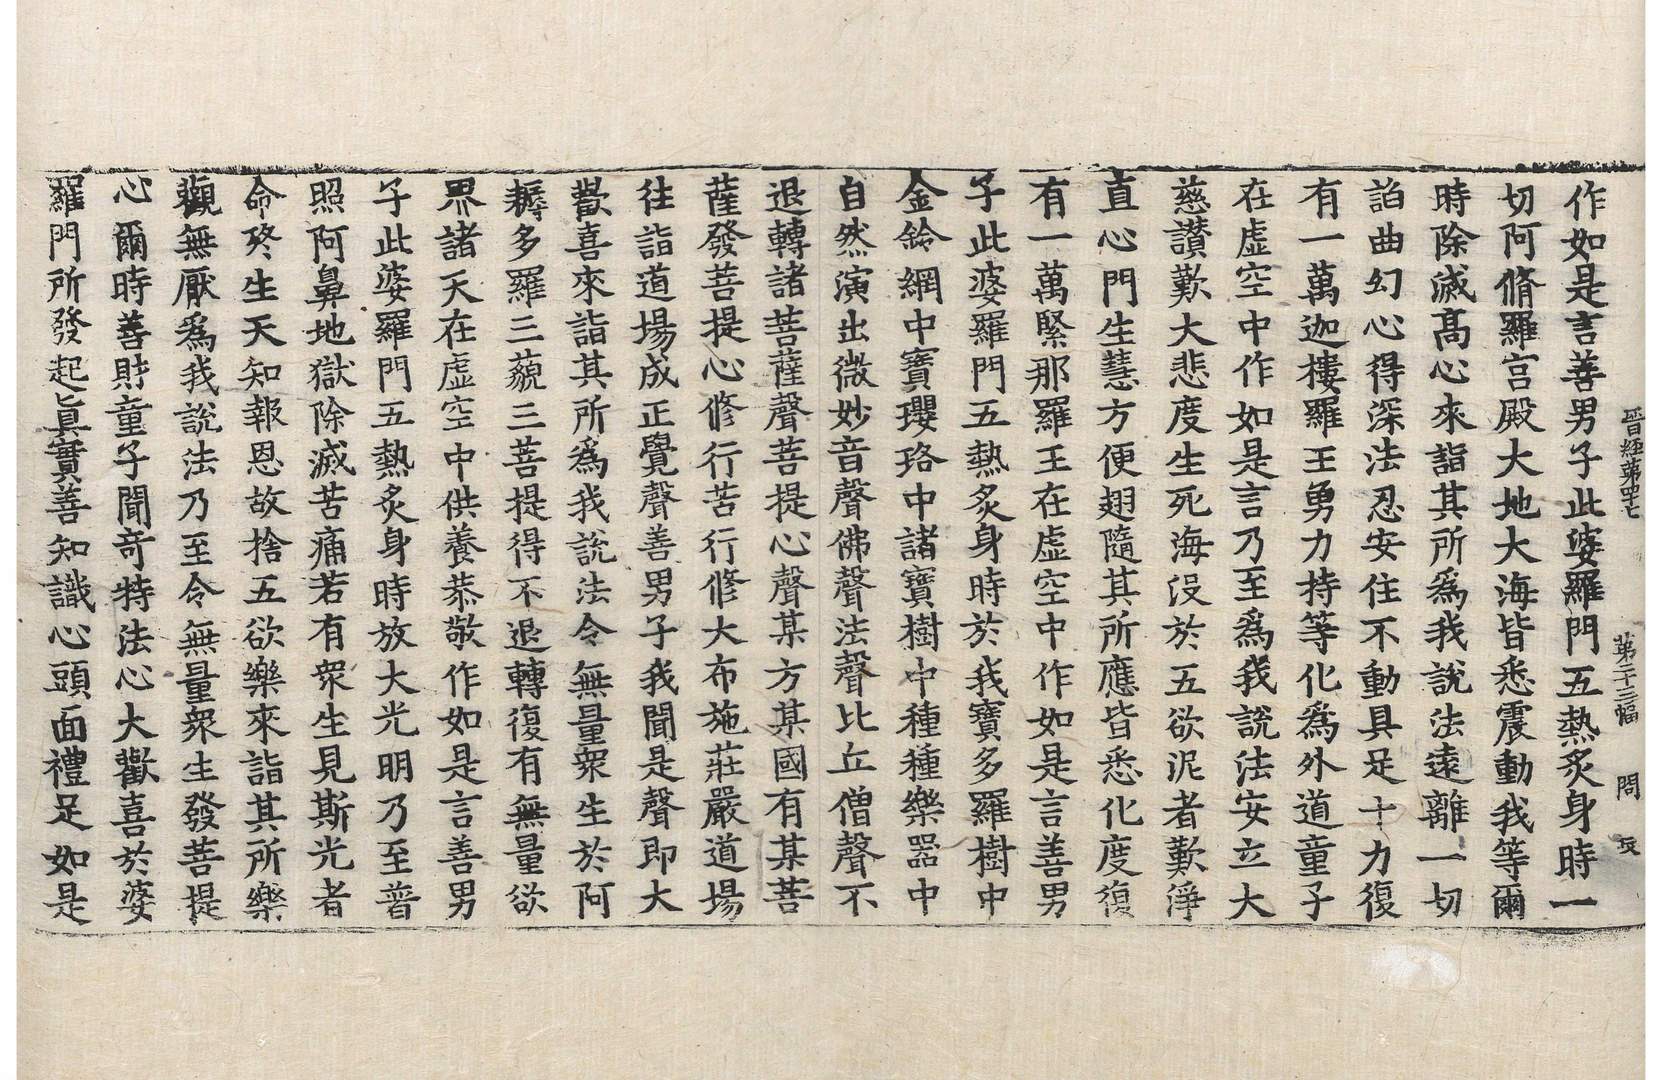 晉經第四十七 第二十三幅 問
作如是言善男子此婆羅門五熱炙身時一
切阿脩羅宮殿大地大海皆悉震動我等爾
時除滅髙心來詣其所爲我說法遠離一切
諂曲幻心得深法忍安住不動具足十力復
有一萬迦樓羅王勇力持等化爲外道童子
在虛空中作如是言乃至爲我說法安立大
慈讃歎大悲度生死海没於五欲泥者歎淨
直心門生慧方便翅隨其所應皆悉化度復
有一萬緊那羅王在虛空中作如是言善男
子此婆羅門五熱炙身時於我寶多羅樹中
金鈴網中寶瓔珞中諸寶樹中種種樂器中
自然演出微妙音聲佛聲法聲比丘僧聲不
退轉諸菩薩聲菩提心聲某方某國有某菩
薩發菩提心修行苦行修大布施莊嚴道場
往詣道場成正覺聲善男子我聞是聲即大
歡喜來詣其所爲我說法令無量衆生於阿
耨多羅三藐三菩提得不退轉復有無量欲
界諸天在虛空中供養恭敬作如是言善男
子此婆羅門五熱炙身時放大光明乃至普
照阿鼻地獄除滅苦痛若有衆生見斯光者
命終生天知報恩故捨五欲樂來詣其所樂
觀無厭爲我說法乃至令無量衆生發菩提
心爾時善財童子聞奇特法心大歡喜於婆
羅門所發起眞實善知識心頭面禮足如是